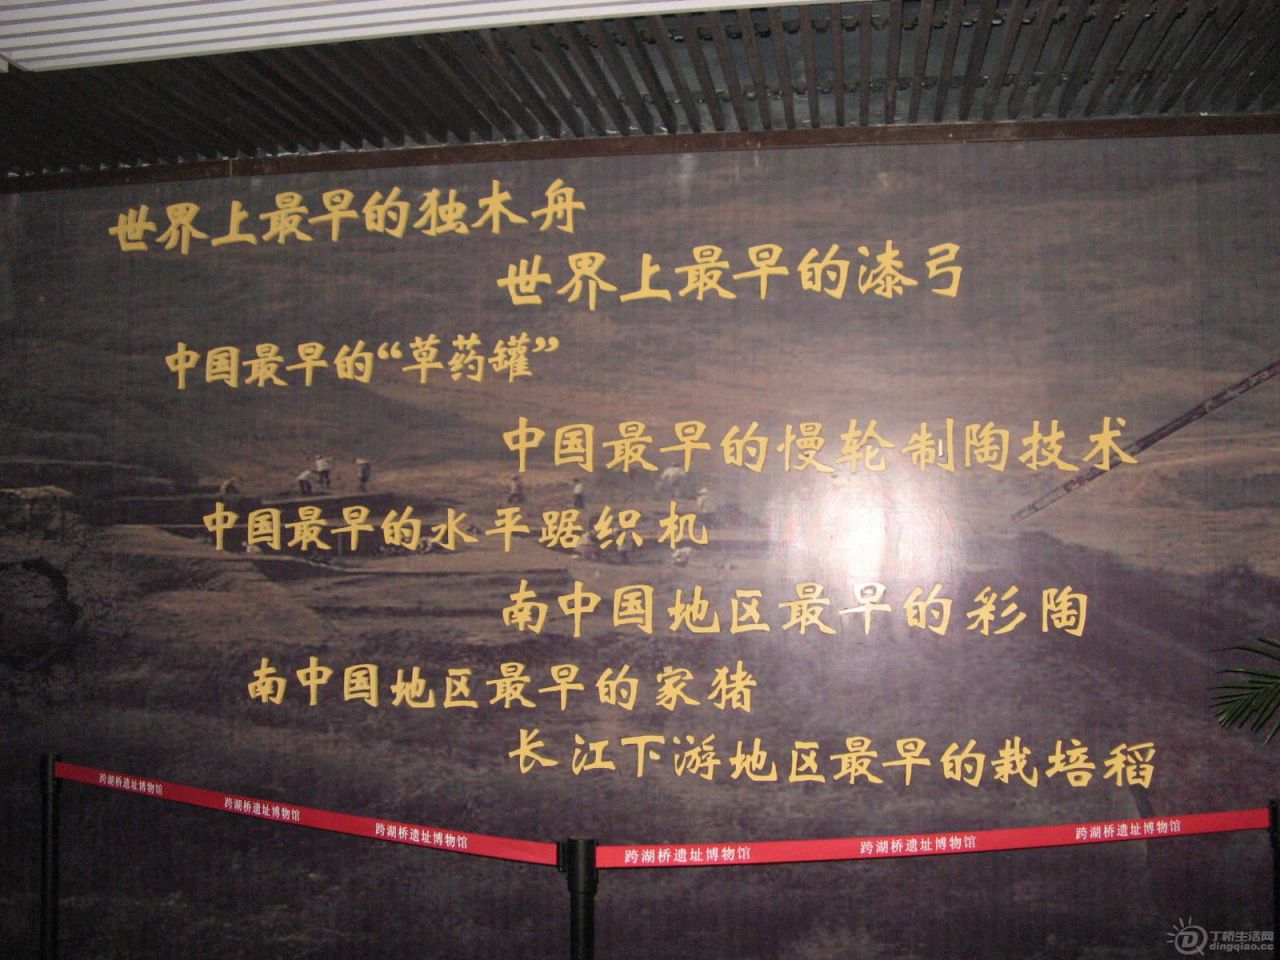 世界上最早的独木舟
世界上最早的漆弓
中国最早的“草药罐”
中国最早的慢轮制陶技术
中国最早的水平踞织机
南中国地区最早的彩陶
南中国地区最早的家猪
长江下游地区最早的栽培稻
跨湖桥遗址博物馆
跨湖桥遗址博物馆
跨湖桥遗址博物馆
跨湖桥遗址博物馆
跨湖桥遗址博物馆
跨湖桥遗址博物馆
丁桥生活网
dingqiao.cc